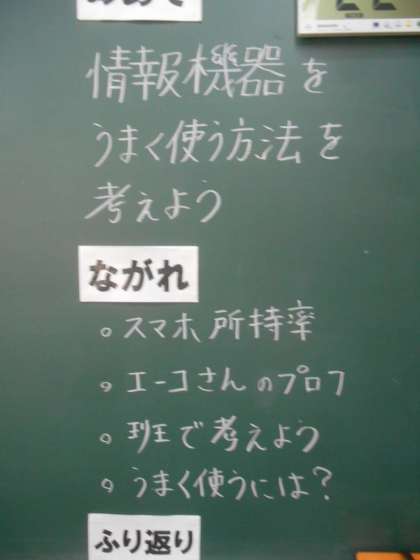 情報機器を
うまく使う方法を
考えよう
ながれ
。スマホ所持率
。エーコさんのプロフ
。班で考えよう
。うまく使うには？
ふり返り